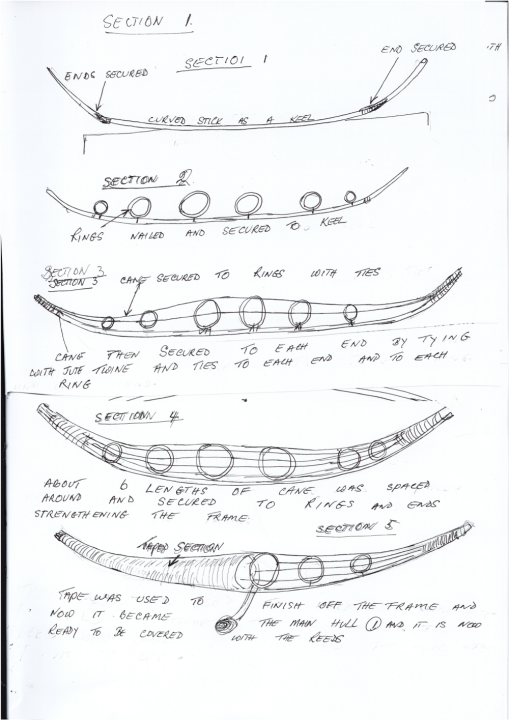 SECTION 1.
SECTIOI 1
END SECURED
TH
ENDS SECURED
CURVED STICK AS A KEEL
SECTION 2
RINGS NAILED AND SECURED TO KEEL
SECTION 3
SECTION 3
CANE SECURED TO RINGS WITH TIES
CANE THEN SECURED TO EACH END BY TYING
WITH JUTE TWINE AND TIES TO EACH END AND TO EACH
RING
SECTIONN 4
ABOUT 6 LENGTHS OF CANE WAS SPACED
AROUND AND SECURED TO RINGS AND ENDS
STRENGTHENING THE FRAME.
SECTION 5
TAPED SECTION
TAPE WAS USED TO
NOW IT BECAME
READY TO BE COVERED
FINISH OFF THE FRAME AND
THE MAIN HULL 1 AND IT IS NOW
WITH THE REEDS